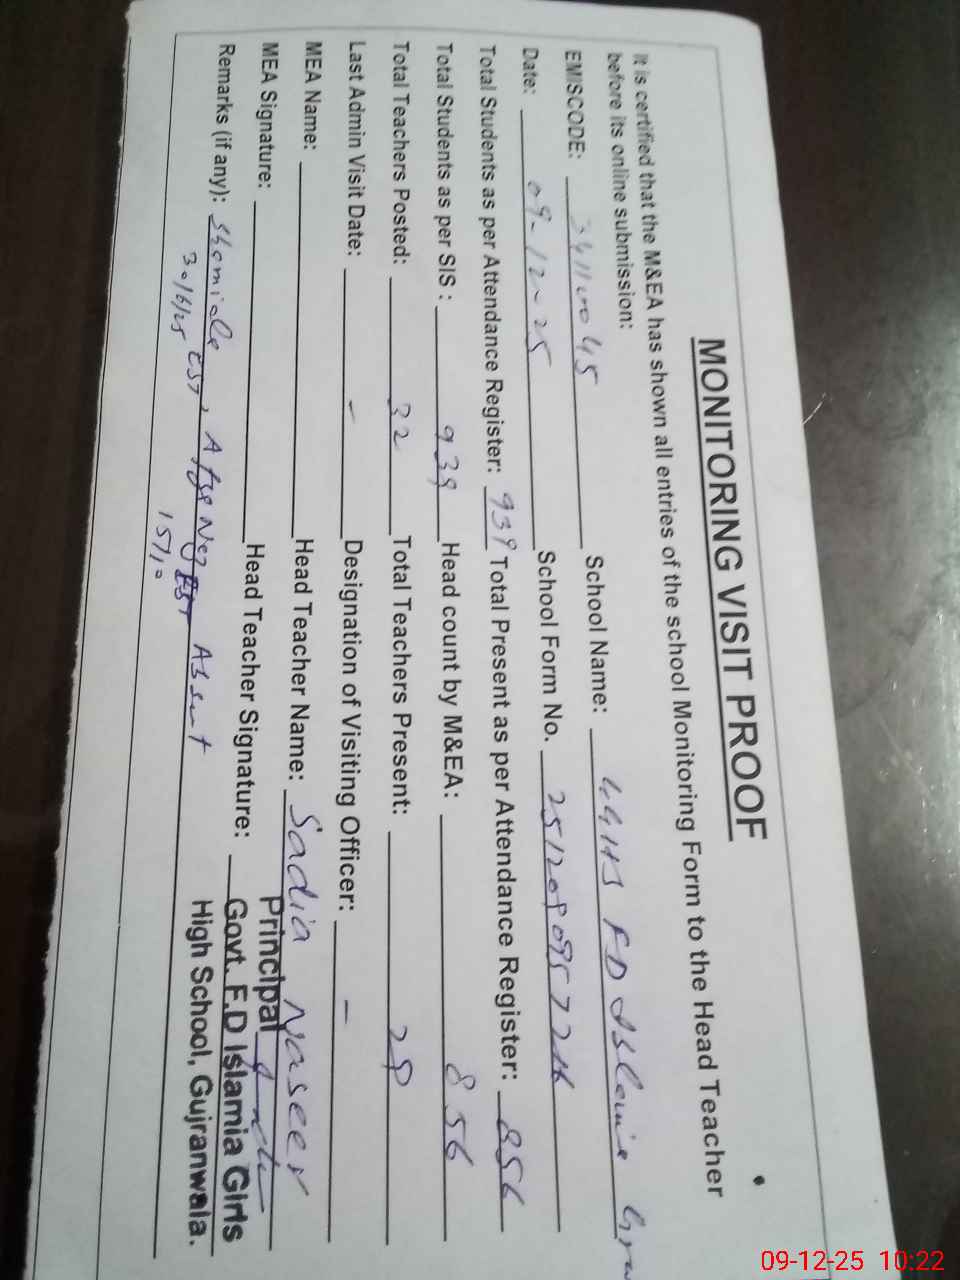 MONITORING VISIT PROOF
It is certified that the M&EA has shown all entries of the school Monitoring Form to the Head Teacher
before its online submission:
EMISCODE: 34110045 School Name: GGHS F.D Islamia Grw
Date: 09-12-25 School Form No.
Total Students as per Attendance Register: 939 Total Present as per Attendance Register: 856
Total Students as per SIS : 939 Head count by M&EA: 856
Total Teachers Posted: 32 Total Teachers Present: 29
Last Admin Visit Date: - Designation of Visiting Officer: -
MEA Name: Head Teacher Name: Sadia Naseer
MEA Signature: Head Teacher Signature:
Principal
Govt. F.D Islamia Girls
High School, Gujranwala.
Remarks (if any): EST, EST Absent
30/6/25
09-12-25 10:22